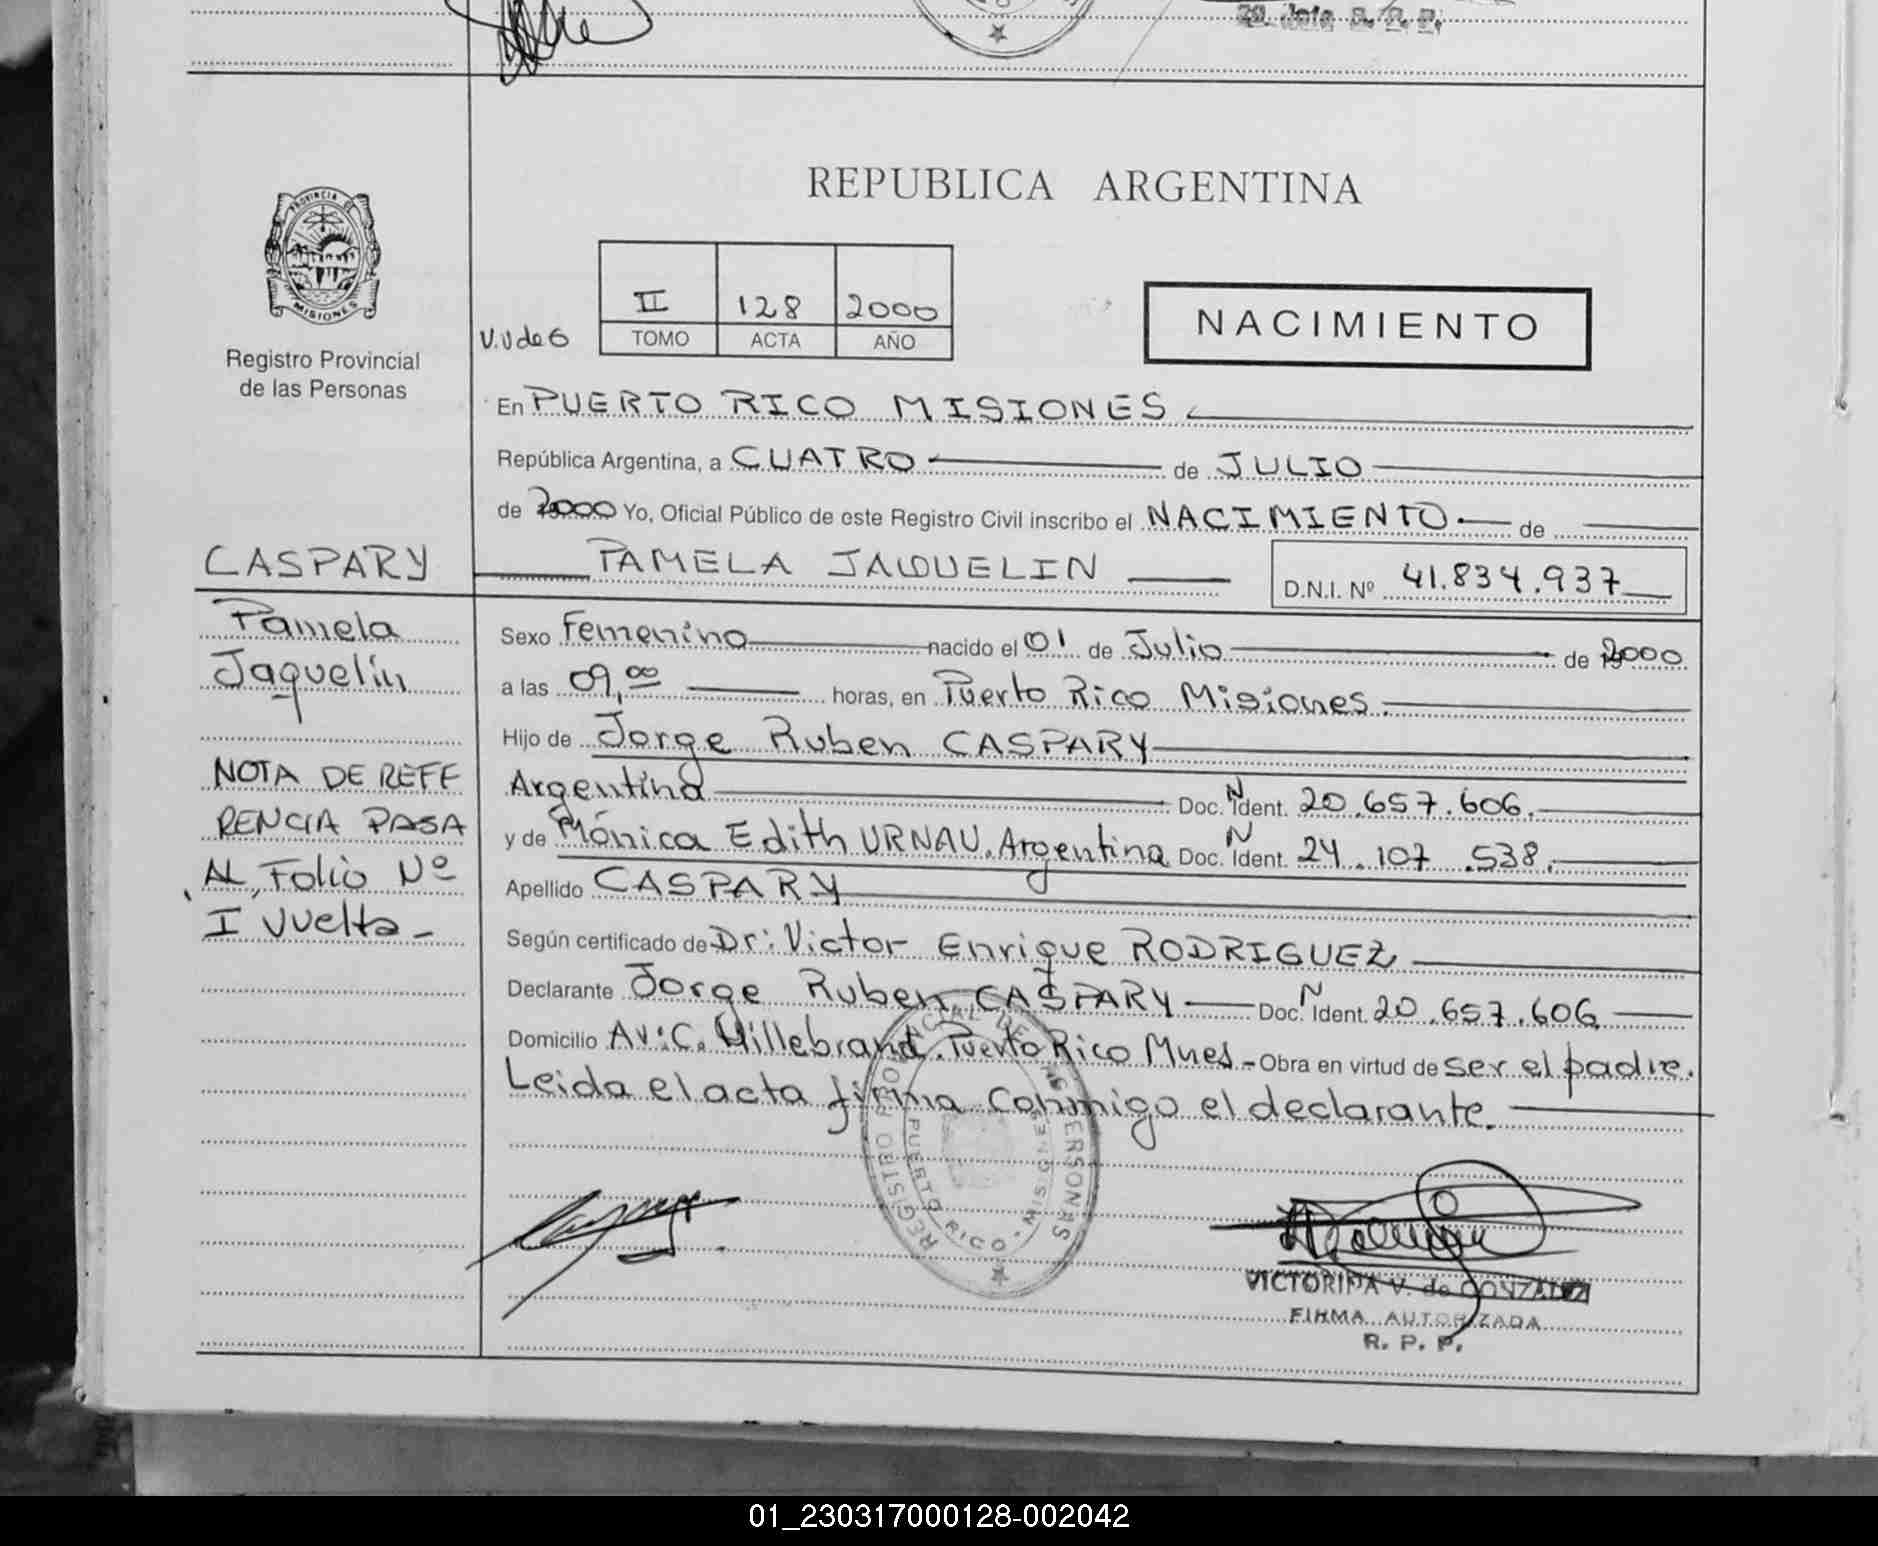 2º Jefe R. P. P.
REPUBLICA ARGENTINA
PROVINCIA DE MISIONES
Registro Provincial
de las Personas
V.V de G
II 128 2000
TOMO ACTA AÑO
NACIMIENTO
En PUERTO RICO MISIONES
República Argentina, a CUATRO de JULIO
de 2000 Yo, Oficial Público de este Registro Civil inscribo el NACIMIENTO de
PAMELA JAQUELIN D.N.I. Nº 41.834.937
CASPARY
Pamela
Jaquelin
NOTA DE REFE
RENCIA PASA
AL FOLIO Nº
I vuelta-
Sexo Femenino nacido el 01 de Julio de 2000
a las 09,00 horas, en Puerto Rico Misiones.
Hijo de Jorge Ruben CASPARY
Argentina Doc. N Ident. 20.657.606.
y de Mónica Edith URNAU. Argentina Doc. N Ident. 24.107.538.
Apellido CASPARY
Según certificado de Dr: Victor Enrique RODRIGUEZ
Declarante Jorge Ruben CASPARY Doc. N Ident. 20.657.606
Domicilio Av: C. Hillebrand. Puerto Rico Mnes - Obra en virtud de ser el padre.
Leida el acta firma conmigo el declarante.
REGISTRO PROVINCIAL DE LAS PERSONAS
PUERTO RICO - MISIONES
VICTORINA V. de GONZALEZ
FIRMA AUTORIZADA
R. P. P.
01_230317000128-002042